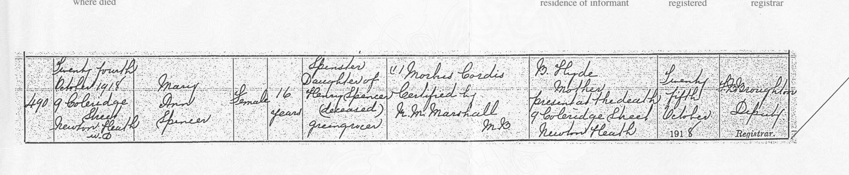 where died
residence of informant
registered
registrar
490
Twenty fourth
October 1918
9 Coleridge
Street
Newton Heath
U.D
Mary
Ann
Spencer
Female
16
years
Spinster
Daughter of
Henry Spencer
(deceased)
greengrocer
(1) Morbis Cordis
Certified by
M. Marshall
M.B
B. Hyde
Mother
present at the death
9 Coleridge Street
Newton Heath
Twenty
fifth
October
1918
Broughton
Deputy
Registrar.